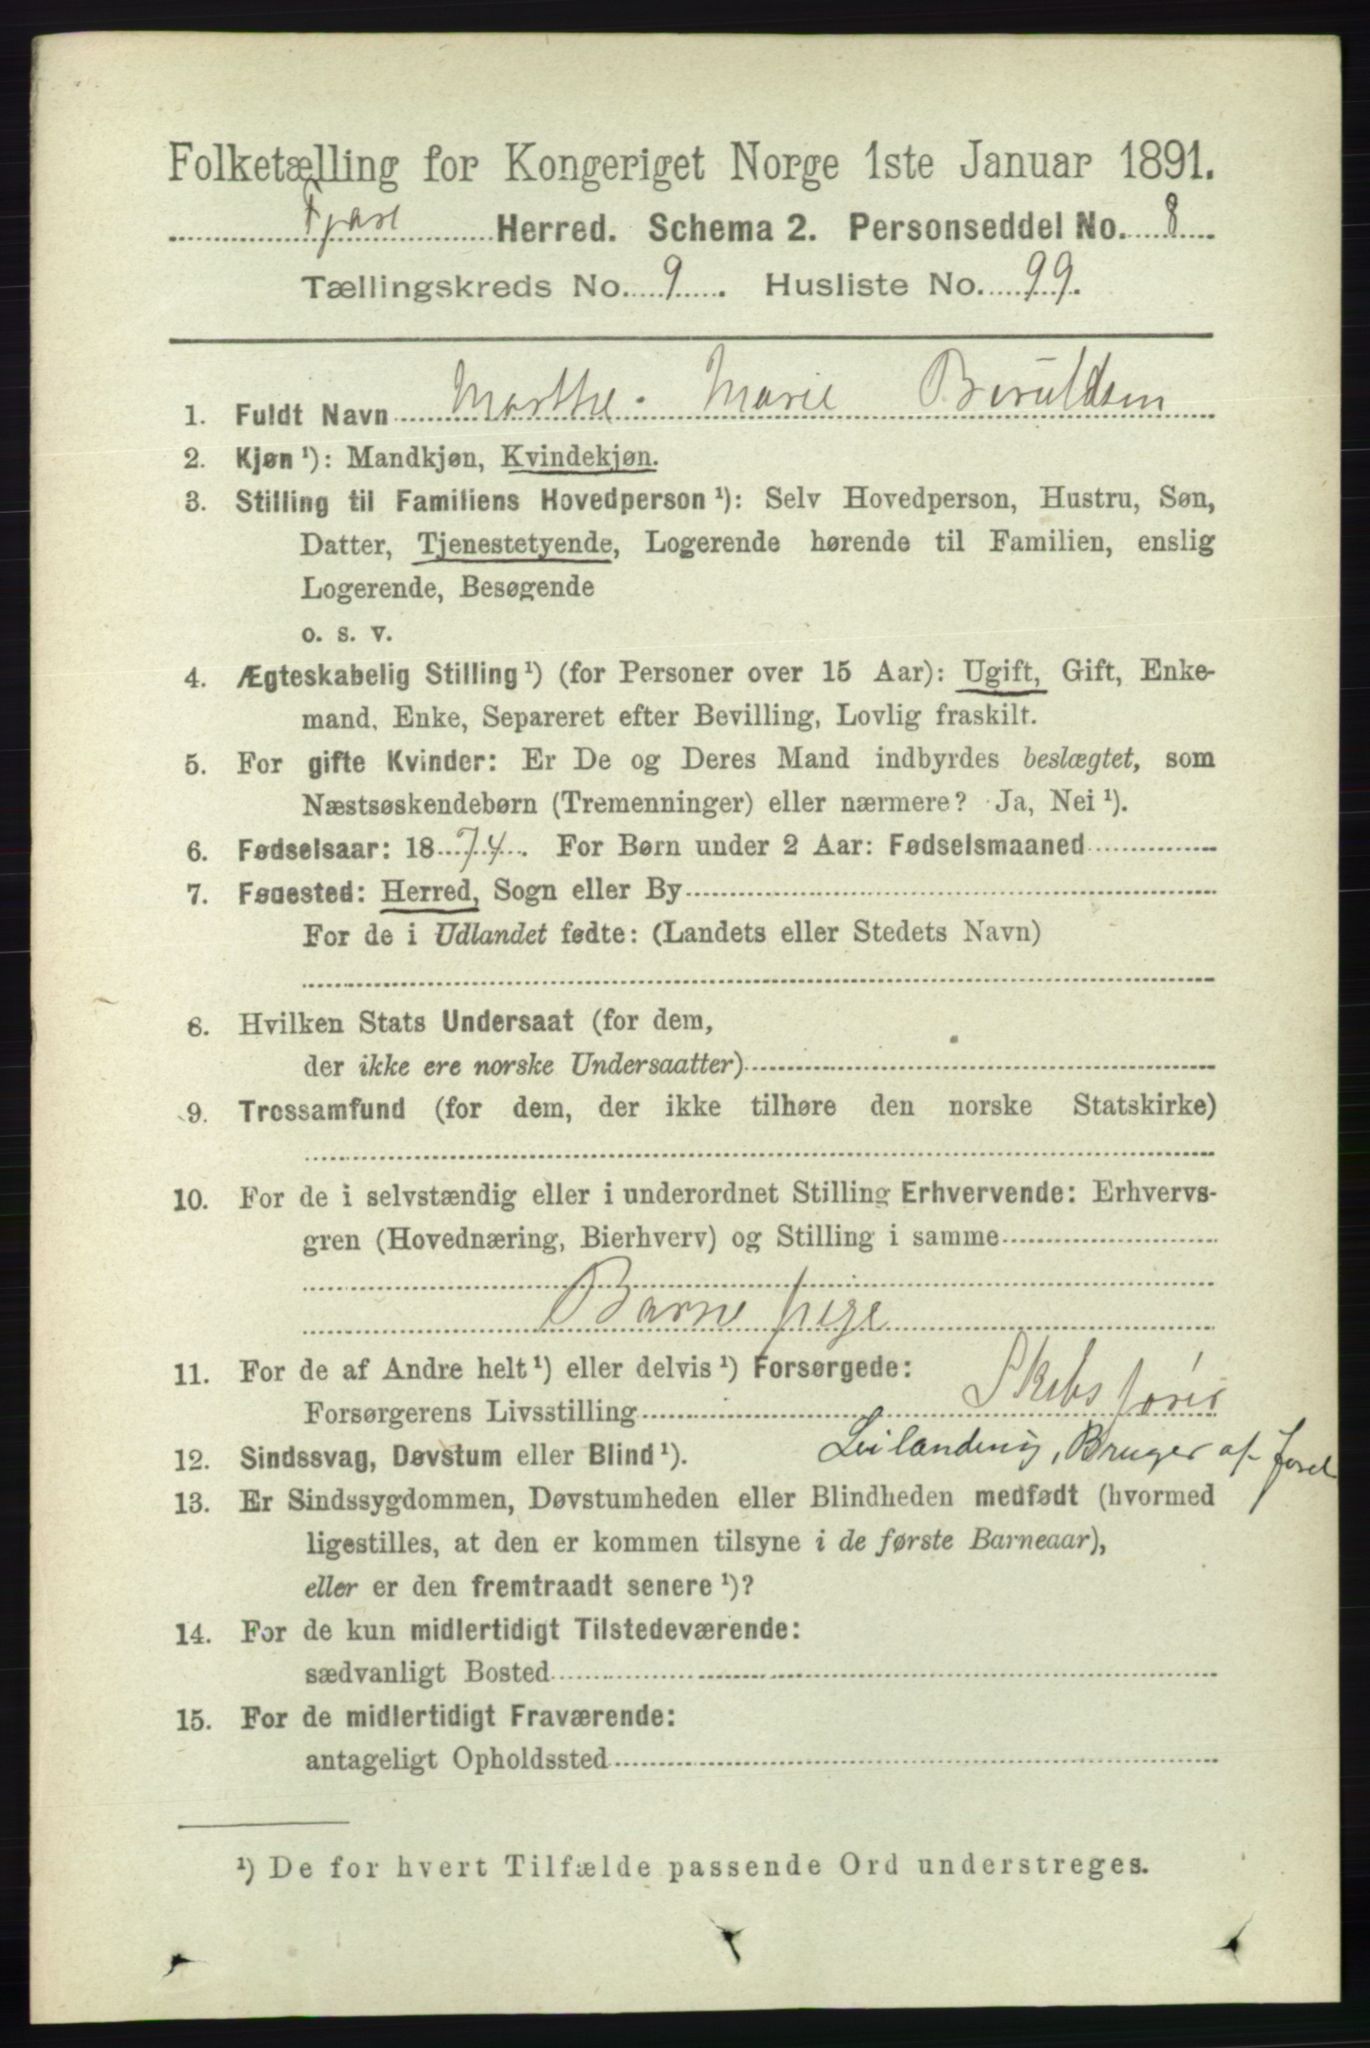 Folketælling for Kongeriget Norge 1ste Januar 1891.
Herred. Schema 2. Personseddel No. 8
Tællingskreds No. 9. Husliste No. 99.
1. Fuldt Navn Marthe Marie
2. Kjøn ¹): Mandkjøn, Kvindekjøn.
3. Stilling til Familiens Hovedperson ¹): Selv Hovedperson, Hustru, Søn,
Datter, Tjenestetyende, Logerende hørende til Familien, enslig
Logerende, Besøgende
o. s. v.
4. Ægteskabelig Stilling ¹) (for Personer over 15 Aar): Ugift, Gift, Enke-
mand, Enke, Separeret efter Bevilling, Lovlig fraskilt.
5. For gifte Kvinder: Er De og Deres Mand indbyrdes beslægtet, som
Næstsøskendebørn (Tremenninger) eller nærmere? Ja, Nei ¹).
6. Fødselsaar: 1874. For Børn under 2 Aar: Fødselsmaaned
7. Fødested: Herred, Sogn eller By
For de i Udlandet fødte: (Landets eller Stedets Navn)
8. Hvilken Stats Undersaat (for dem,
der ikke ere norske Undersaatter)
9. Trossamfund (for dem, der ikke tilhøre den norske Statskirke)
10. For de i selvstændig eller i underordnet Stilling Erhvervende: Erhvervs-
gren (Hovednæring, Bierhverv) og Stilling i samme
Barnepige
11. For de af Andre helt ¹) eller delvis ¹) Forsørgede:
Forsørgerens Livsstilling
12. Sindssvag, Døvstum eller Blind ¹). Leilænding, Bruger af Jord
13. Er Sindssygdommen, Døvstumheden eller Blindheden medfødt (hvormed
ligestilles, at den er kommen tilsyne i de første Barneaar),
eller er den fremtraadt senere ¹)?
14. For de kun midlertidigt Tilstedeværende:
sædvanligt Bosted
15. For de midlertidigt Fraværende:
antageligt Opholdssted
¹) De for hvert Tilfælde passende Ord understreges.